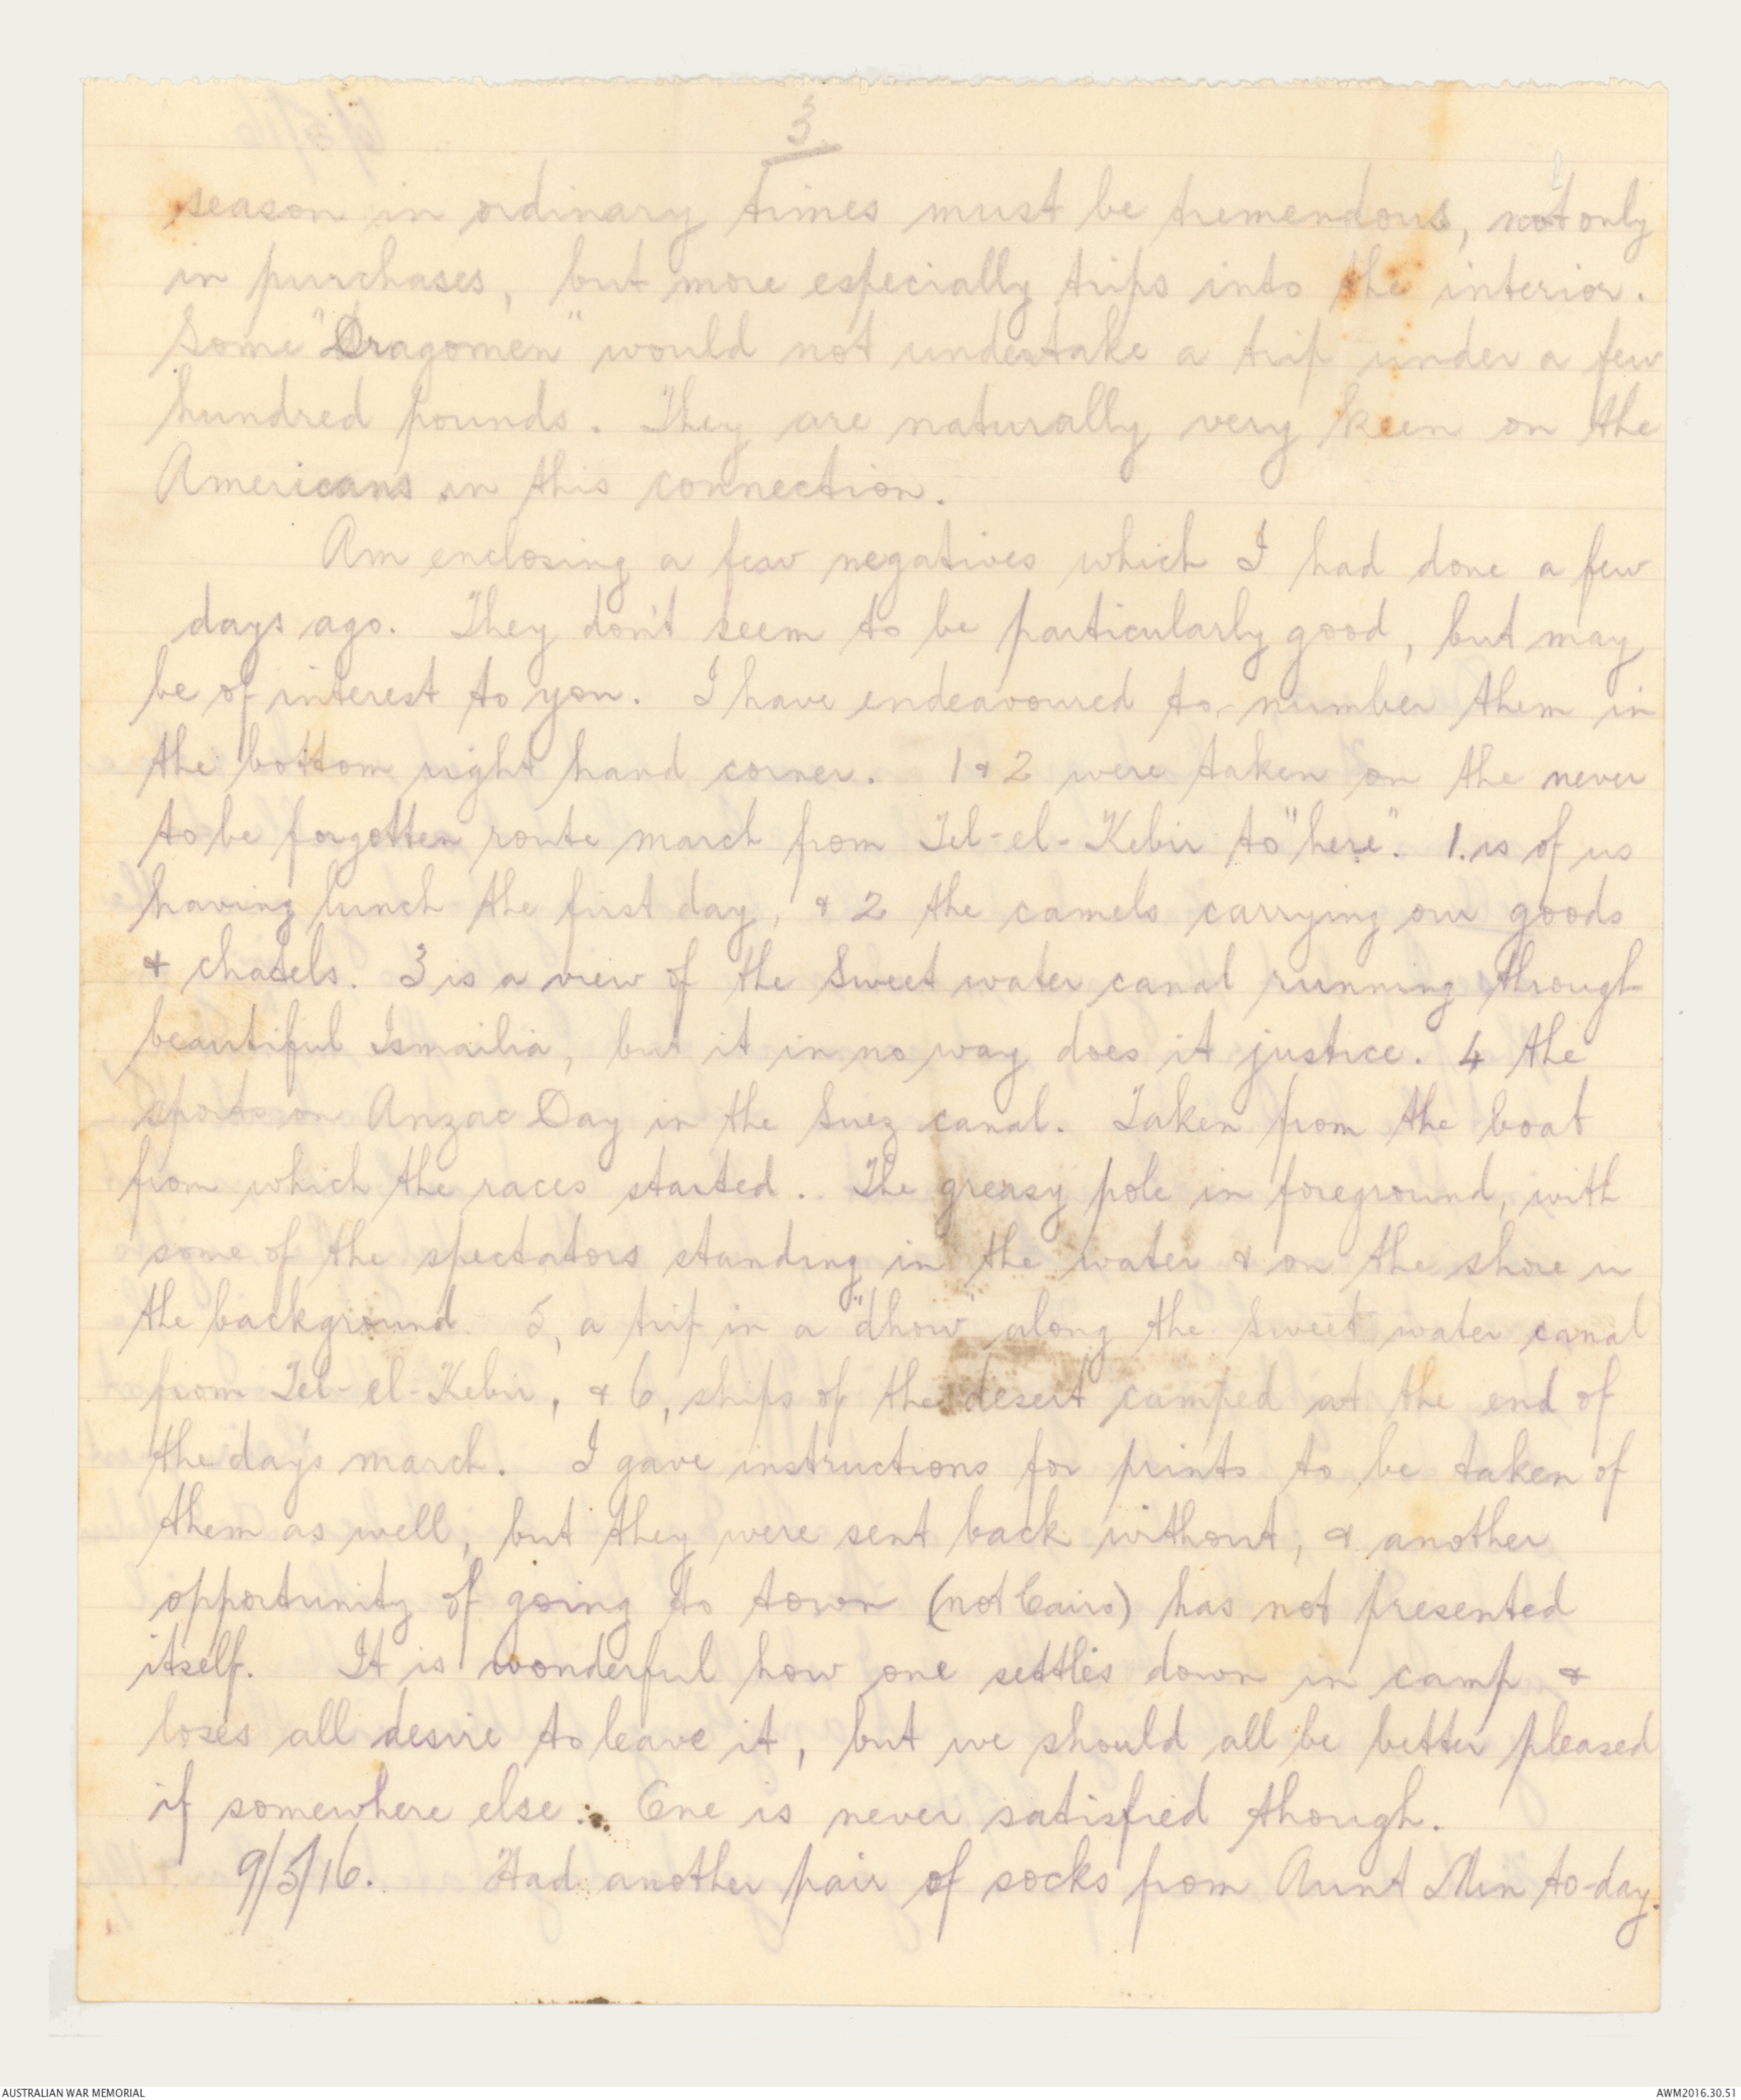 3
season in ordinary times must be tremendous, not only
in purchases, but more especially trips into the interior.
Some "Dragomen" would not undertake a trip under a few
hundred pounds. They are naturally very keen on the
Americans in this connection.
Am enclosing a few negatives which I had done a few
days ago. They don't seem to be particularly good, but may
be of interest to you. I have endeavoured to number them in
the bottom right hand corner. 1 & 2 were taken on the never
to be forgotten route march from Tel-el-Kebir to "here". 1. is of us
having lunch the first day, & 2 the camels carrying our goods
& chatels. 3 is a view of the Sweet water canal running through
beautiful Ismailia, but it in no way does it justice. 4 the
sports on Anzac Day in the Suez canal. Taken from the boat
from which the races started. The greasy pole in foreground, with
some of the spectators standing in the water & on the shore in
the background. 5, a trip in a "dhow" along the Sweet water canal
from Tel-el-Kebir, & 6, ships of the desert camped at the end of
the day's march. I gave instructions for prints to be taken of
them as well, but they were sent back without, & another
opportunity of going to town (not Cairo) has not presented
itself. It is wonderful how one settles down in camp &
loses all desire to leave it, but we should all be better pleased
if somewhere else. One is never satisfied though.
9/5/16. Had another pair of socks from Aunt Min to-day.
AUSTRALIAN WAR MEMORIAL
AWM2016.30.51